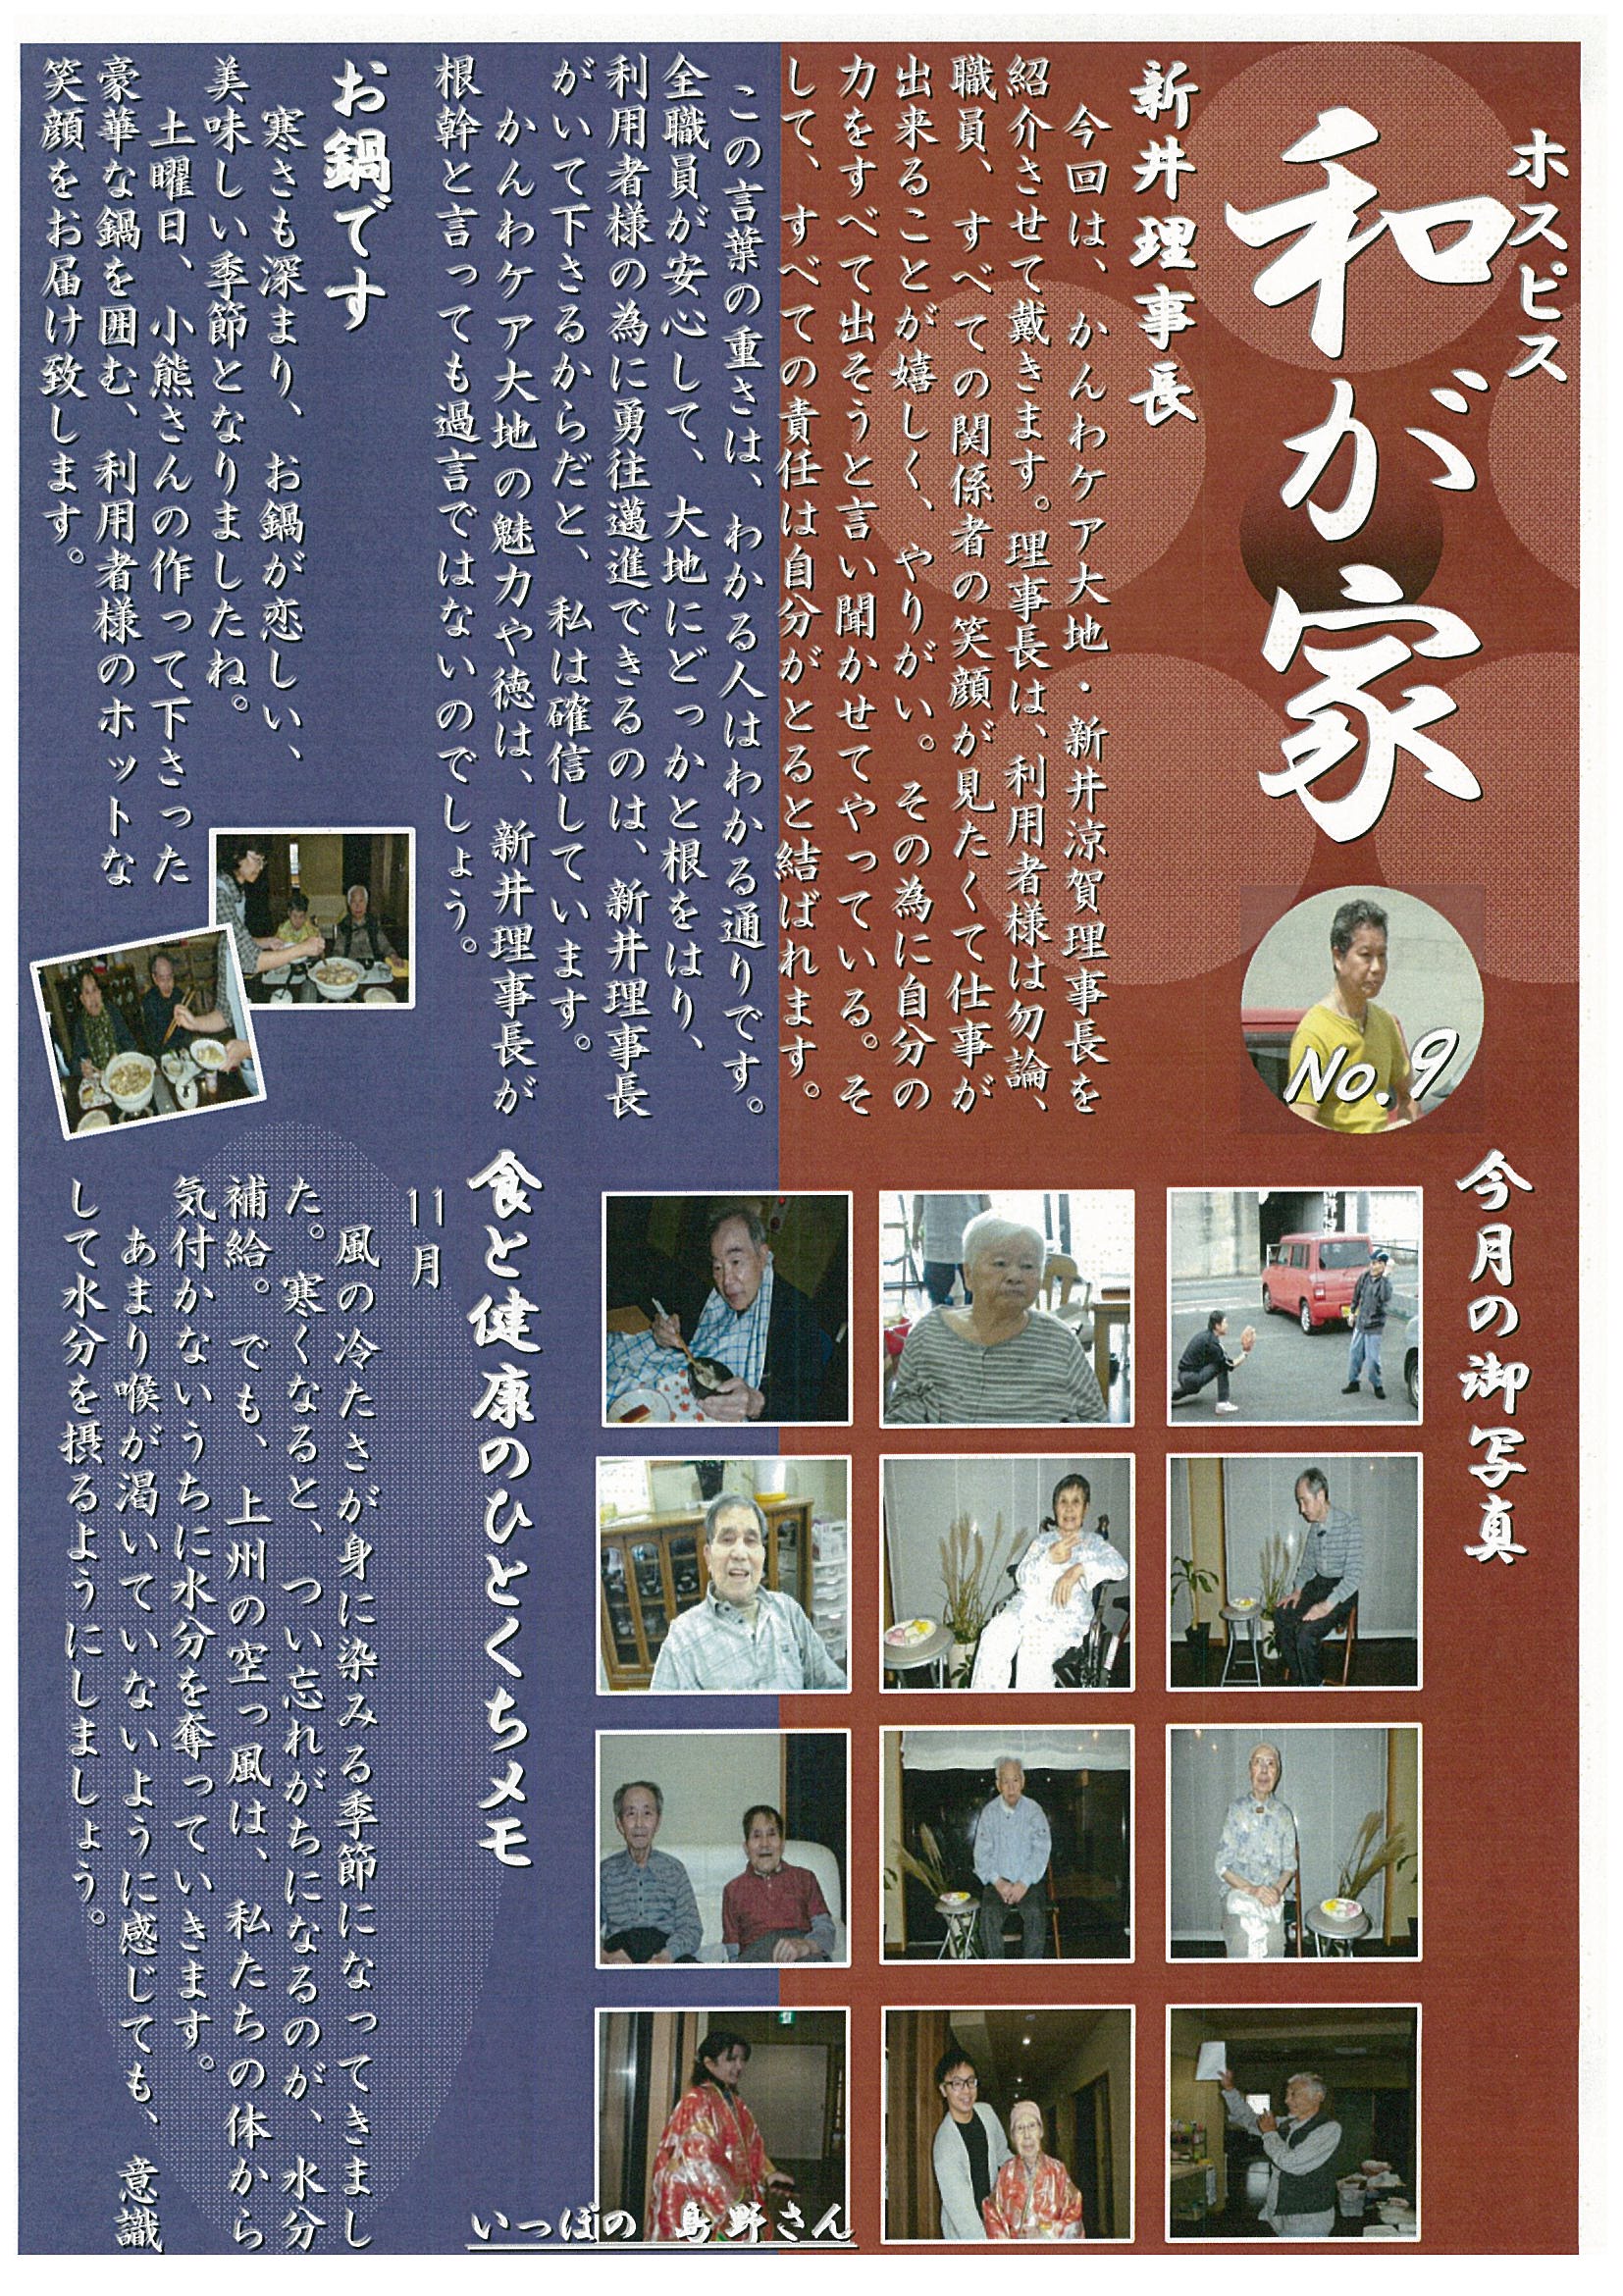 ホスピス
和が家
No.9
新井理事長
今回は、かんわケア大地・新井涼賀理事長を
紹介させて戴きます。理事長は、利用者様は勿論、
職員、すべての関係者の笑顔が見たくて仕事が
出来ることが嬉しく、やりがい。その為に自分の
力をすべて出そうと言い聞かせてやっている。そ
して、すべての責任は自分がとると結ばれます。
この言葉の重さは、わかる人はわかる通りです。
全職員が安心して、大地にどっかと根をはり、
利用者様の為に勇往邁進できるのは、新井理事長
がいて下さるからだと、私は確信しています。
かんわケア大地の魅力や徳は、新井理事長が
根幹と言っても過言ではないのでしょう。
お鍋です
寒さも深まり、お鍋が恋しい、
美味しい季節となりましたね。
土曜日、小熊さんの作って下さった
豪華な鍋を囲む、利用者様のホットな
笑顔をお届け致します。
今月の御写真
いっぽの 島野さん
食と健康のひとくちメモ
11月
風の冷たさが身に染みる季節になってきまし
た。寒くなると、つい忘れがちになるのが、水分
補給。でも、上州の空っ風は、私たちの体から
気付かないうちに水分を奪っていきます。
あまり喉が渇いていないように感じても、意識
して水分を摂るようにしましょう。